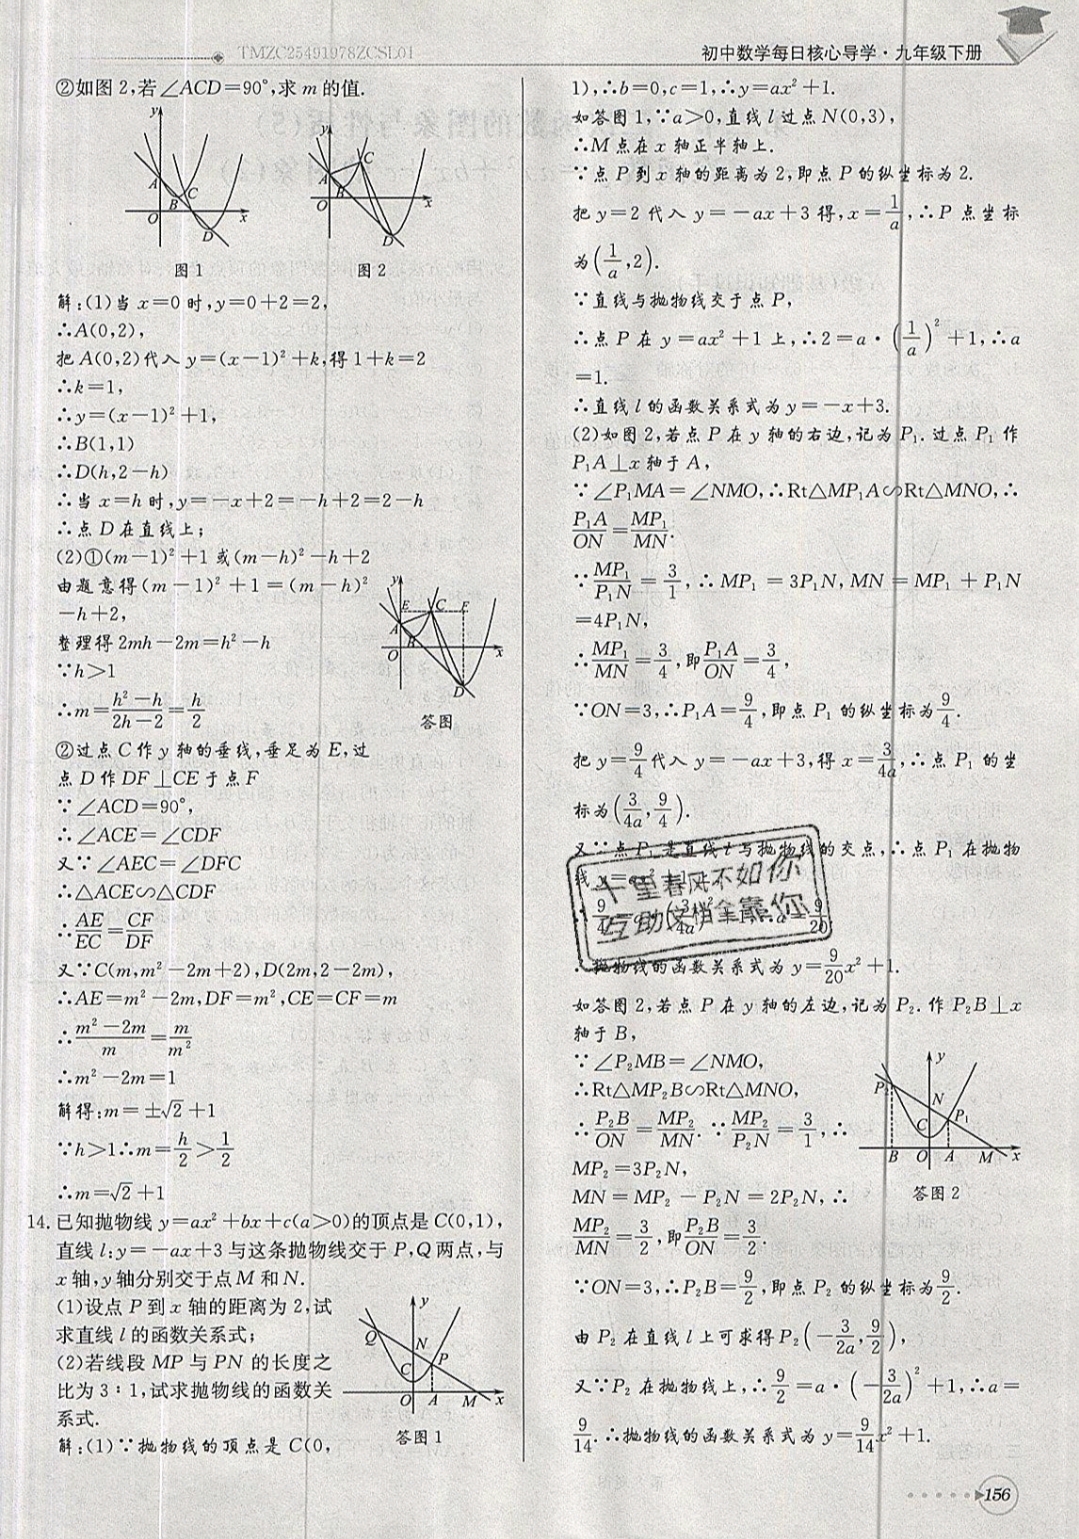 TMZC25491978ZCSL01
初中数学每日核心导学·九年级下册
②如图2,若∠ACD=90°,求m的值.
图1
图2
解:(1)当x=0时,y=0+2=2,
∴A(0,2),
把A(0,2)代入y=(x-1)²+k,得1+k=2
∴k=1,
∴y=(x-1)²+1,
∴B(1,1)
∴D(h,2-h)
∴当x=h时,y=-x+2=-h+2=2-h
∴点D在直线上;
(2)①(m-1)²+1或(m-h)²-h+2
由题意得(m-1)²+1=(m-h)²
-h+2,
整理得2mh-2m=h²-h
∵h>1
∴m=(h²-h)/(2h-2)=h/2
答图
②过点C作y轴的垂线,垂足为E,过
点D作DF⊥CE于点F
∵∠ACD=90°,
∴∠ACE=∠CDF
又∵∠AEC=∠DFC
∴△ACE∽△CDF
∴AE/EC=CF/DF
又∵C(m,m²-2m+2),D(2m,2-2m),
∴AE=m²-2m,DF=m²,CE=CF=m
∴(m²-2m)/m=m/m²
∴m²-2m=1
解得:m=±√2+1
∵h>1∴m=h/2>1/2
∴m=√2+1
14.已知抛物线y=ax²+bx+c(a>0)的顶点是C(0,1),
直线l:y=-ax+3与这条抛物线交于P,Q两点,与
x轴,y轴分别交于点M和N.
(1)设点P到x轴的距离为2,试
求直线l的函数关系式;
(2)若线段MP与PN的长度之
比为3∶1,试求抛物线的函数关
系式.
答图1
解:(1)∵抛物线的顶点是C(0,
1),∴b=0,c=1,∴y=ax²+1.
如答图1,∵a>0,直线l过点N(0,3),
∴M点在x轴正半轴上.
∵点P到x轴的距离为2,即点P的纵坐标为2.
把y=2代入y=-ax+3得,x=1/a,∴P点坐标
为(1/a,2).
∵直线与抛物线交于点P,
∴点P在y=ax²+1上,∴2=a·(1/a)²+1,∴a
=1.
∴直线l的函数关系式为y=-x+3.
(2)如图2,若点P在y轴的右边,记为P₁.过点P₁作
P₁A⊥x轴于A,
∵∠P₁MA=∠NMO,∴Rt△MP₁A∽Rt△MNO,∴
P₁A/ON=MP₁/MN.
∵MP₁/P₁N=3/1,∴MP₁=3P₁N,MN=MP₁+P₁N
=4P₁N,
∴MP₁/MN=3/4,即P₁A/ON=3/4,
∵ON=3,∴P₁A=9/4,即点P₁的纵坐标为9/4.
把y=9/4代入y=-ax+3,得x=3/4a,∴点P₁的坐
标为(3/4a,9/4).
又∵点P₁是直线l与抛物线的交点,∴点P₁在抛物
十里春风不如你
互助文档全靠你
∴抛物线的函数关系式为y=9/20x²+1.
如答图2,若点P在y轴的左边,记为P₂.作P₂B⊥x
轴于B,
∵∠P₂MB=∠NMO,
∴Rt△MP₂B∽Rt△MNO,
∴P₂B/ON=MP₂/MN.∵MP₂/P₂N=3/1,∴
MP₂=3P₂N,
MN=MP₂-P₂N=2P₂N,∴
答图2
MP₂/MN=3/2,即P₂B/ON=3/2.
∵ON=3,∴P₂B=9/2,即点P₂的纵坐标为9/2.
由P₂在直线l上可求得P₂(-3/2a,9/2),
又∵P₂在抛物线上,∴9/2=a·(-3/2a)²+1,∴a=
9/14.∴抛物线的函数关系式为y=9/14x²+1.
156